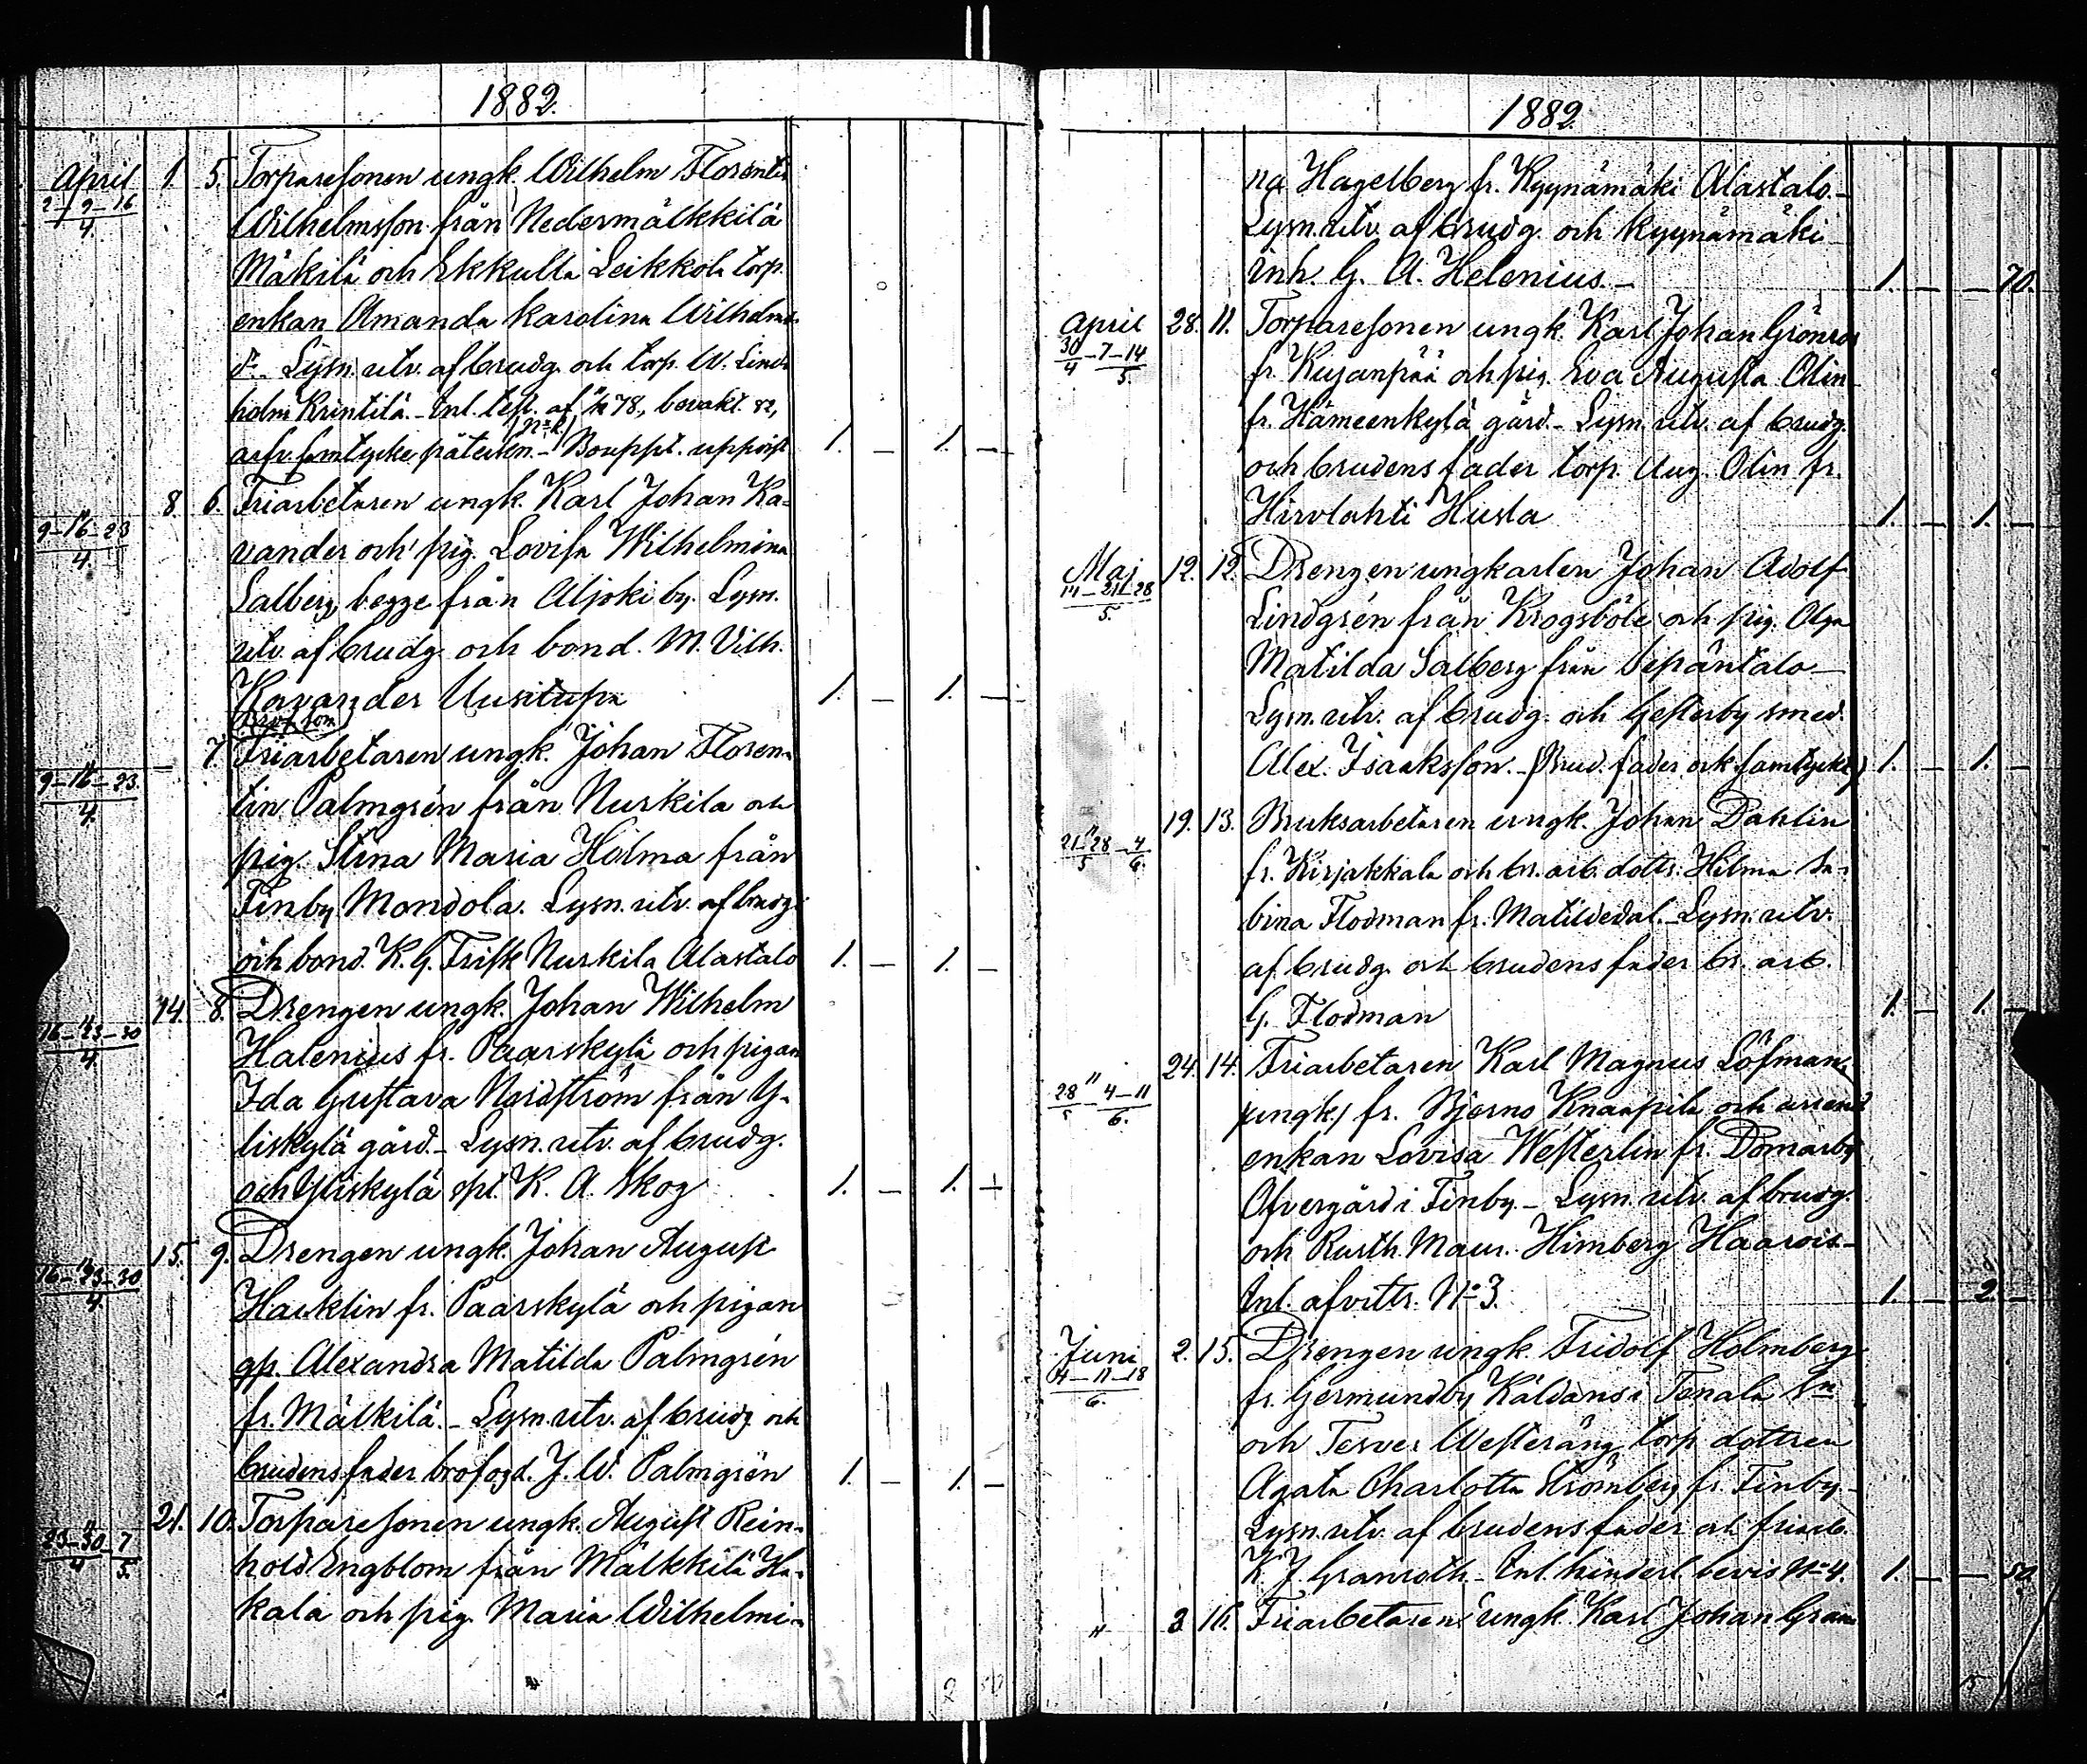 1882.
April 1. 5. Torparesonen ungk. Wilhelm Florentin
2-9-16
4.
Wilhelmsson från Nedermälkkilä
Mäkilä och Ekkulla Leikkola torp.
enkan Amanda Karolina Wilhelms-
dr. Lysn. utv. af brudg. och torp. W. Lind-
holm Krintilä. - Inl. test. af 78, bevakt. 82,
arfv. samtycke påteckn. - Bouppt. uppvist 1. — 1. —
8. 6. Friarbetaren ungk. Karl Johan Ka-
9-16-23
4.
vander och pig. Lovisa Wilhelmina
Salberg, begge från Aljoki by. Lysn.
utv. af brudg. och bond. M. Vilh.
Kavander Uusitupa 1. — 1. —
" 7. Friarbetaren ungk. Johan Floren-
9-16-23.
4.
tin Palmgrén från Nurkila och
pig. Stina Maria Holma från
Finby Mondola. Lysn. utv. af brudg.
och bond. K. G. Frisk Nurkila Alastalo 1. — 1. —
14. 8. Drengen ungk. Johan Wilhelm
16-23-30
4.
Halenius fr. Paarskylä och pigan
Ida Gustava Nordström från Y-
liskylä gård. - Lysn. utv. af brudg.
och Yliskylä spl. K. A. Skog 1. — 1. —
15. 9. Drengen ungk. Johan August
16-23-30
4.
Hacklin fr. Paarskylä och pigan
gp. Alexandra Matilda Palmgrén
fr. Mälkilä. - Lysn. utv. af brudg. och
brudens fader brofogd. J. W. Palmgrén 1. — 1. —
21. 10. Torparesonen ungk. August Rein-
23-30-7
4 5.
hold Engblom från Mälkkilä Ha-
kala och pig. Maria Wilhelmi-
1882.
na Hagelberg fr. Kyynämäki Alastalo. -
Lysn. utv. af brudg. och Kyynämäki
inh. G. A. Helenius. - 1. — — 70.
April 28. 11. Torparesonen ungk. Karl Johan Grönros
30-7-14
4 5.
fr. Kujanpää och pig. Eva Augusta Olin
fr. Hämeenkylä gård. - Lysn. utv. af brudg.
och brudens fader torp. Aug. Olin fr.
Hirvlahti Husla 1. — 1. —
Maj 12. 12. Drengen ungkarlen Johan Adolf
14-21-28
5.
Lindgrén från Krogsböle och pig. Olga
Matilda Salberg från Sepäntalo -
Lysn. utv. af brudg. och Gesterby smed.
Alex. Isaksson. - (Brud. fader ock samtyckt) 1. — 1. —
" 19. 13. Bruksarbetaren ungk. Johan Dahlin
21-28-4
5 6.
fr. Kirjakkala och br. arb. dottr. Hilma Sa-
bina Flodman fr. Matildedal. - Lysn. utv.
af brudg. och brudens fader br. arb.
G. Flodman 1. — 1. —
" 24. 14. Friarbetaren Karl Magnus Löfman,
28-4-11
5 6.
(ungk.) fr. Bjerno Knaapila och
enkan Lovisa Westerlin fr. Domarby
Ofvergård i Finby. - Lysn. utv. af brudg.
och Rusth. Maur. Himberg Haarois -
Inl. afvittr. No 3. 1. — 2. —
Juni 2. 15. Drengen ungk. Fridolf Holmberg
4-11-18
6.
fr. Germundby Käldans i Tenala Sn
och Tesver Westeräng torp. dottren
Agata Charlotta Strömberg fr. Finby. -
Lysn. utv. af brudens fader och friarb.
K. J. Granroth. - Inl. hinderl. bevis No 4. 1. — — 50.
" 3. 16. Friarbetaren ungk. Karl Johan Gran-